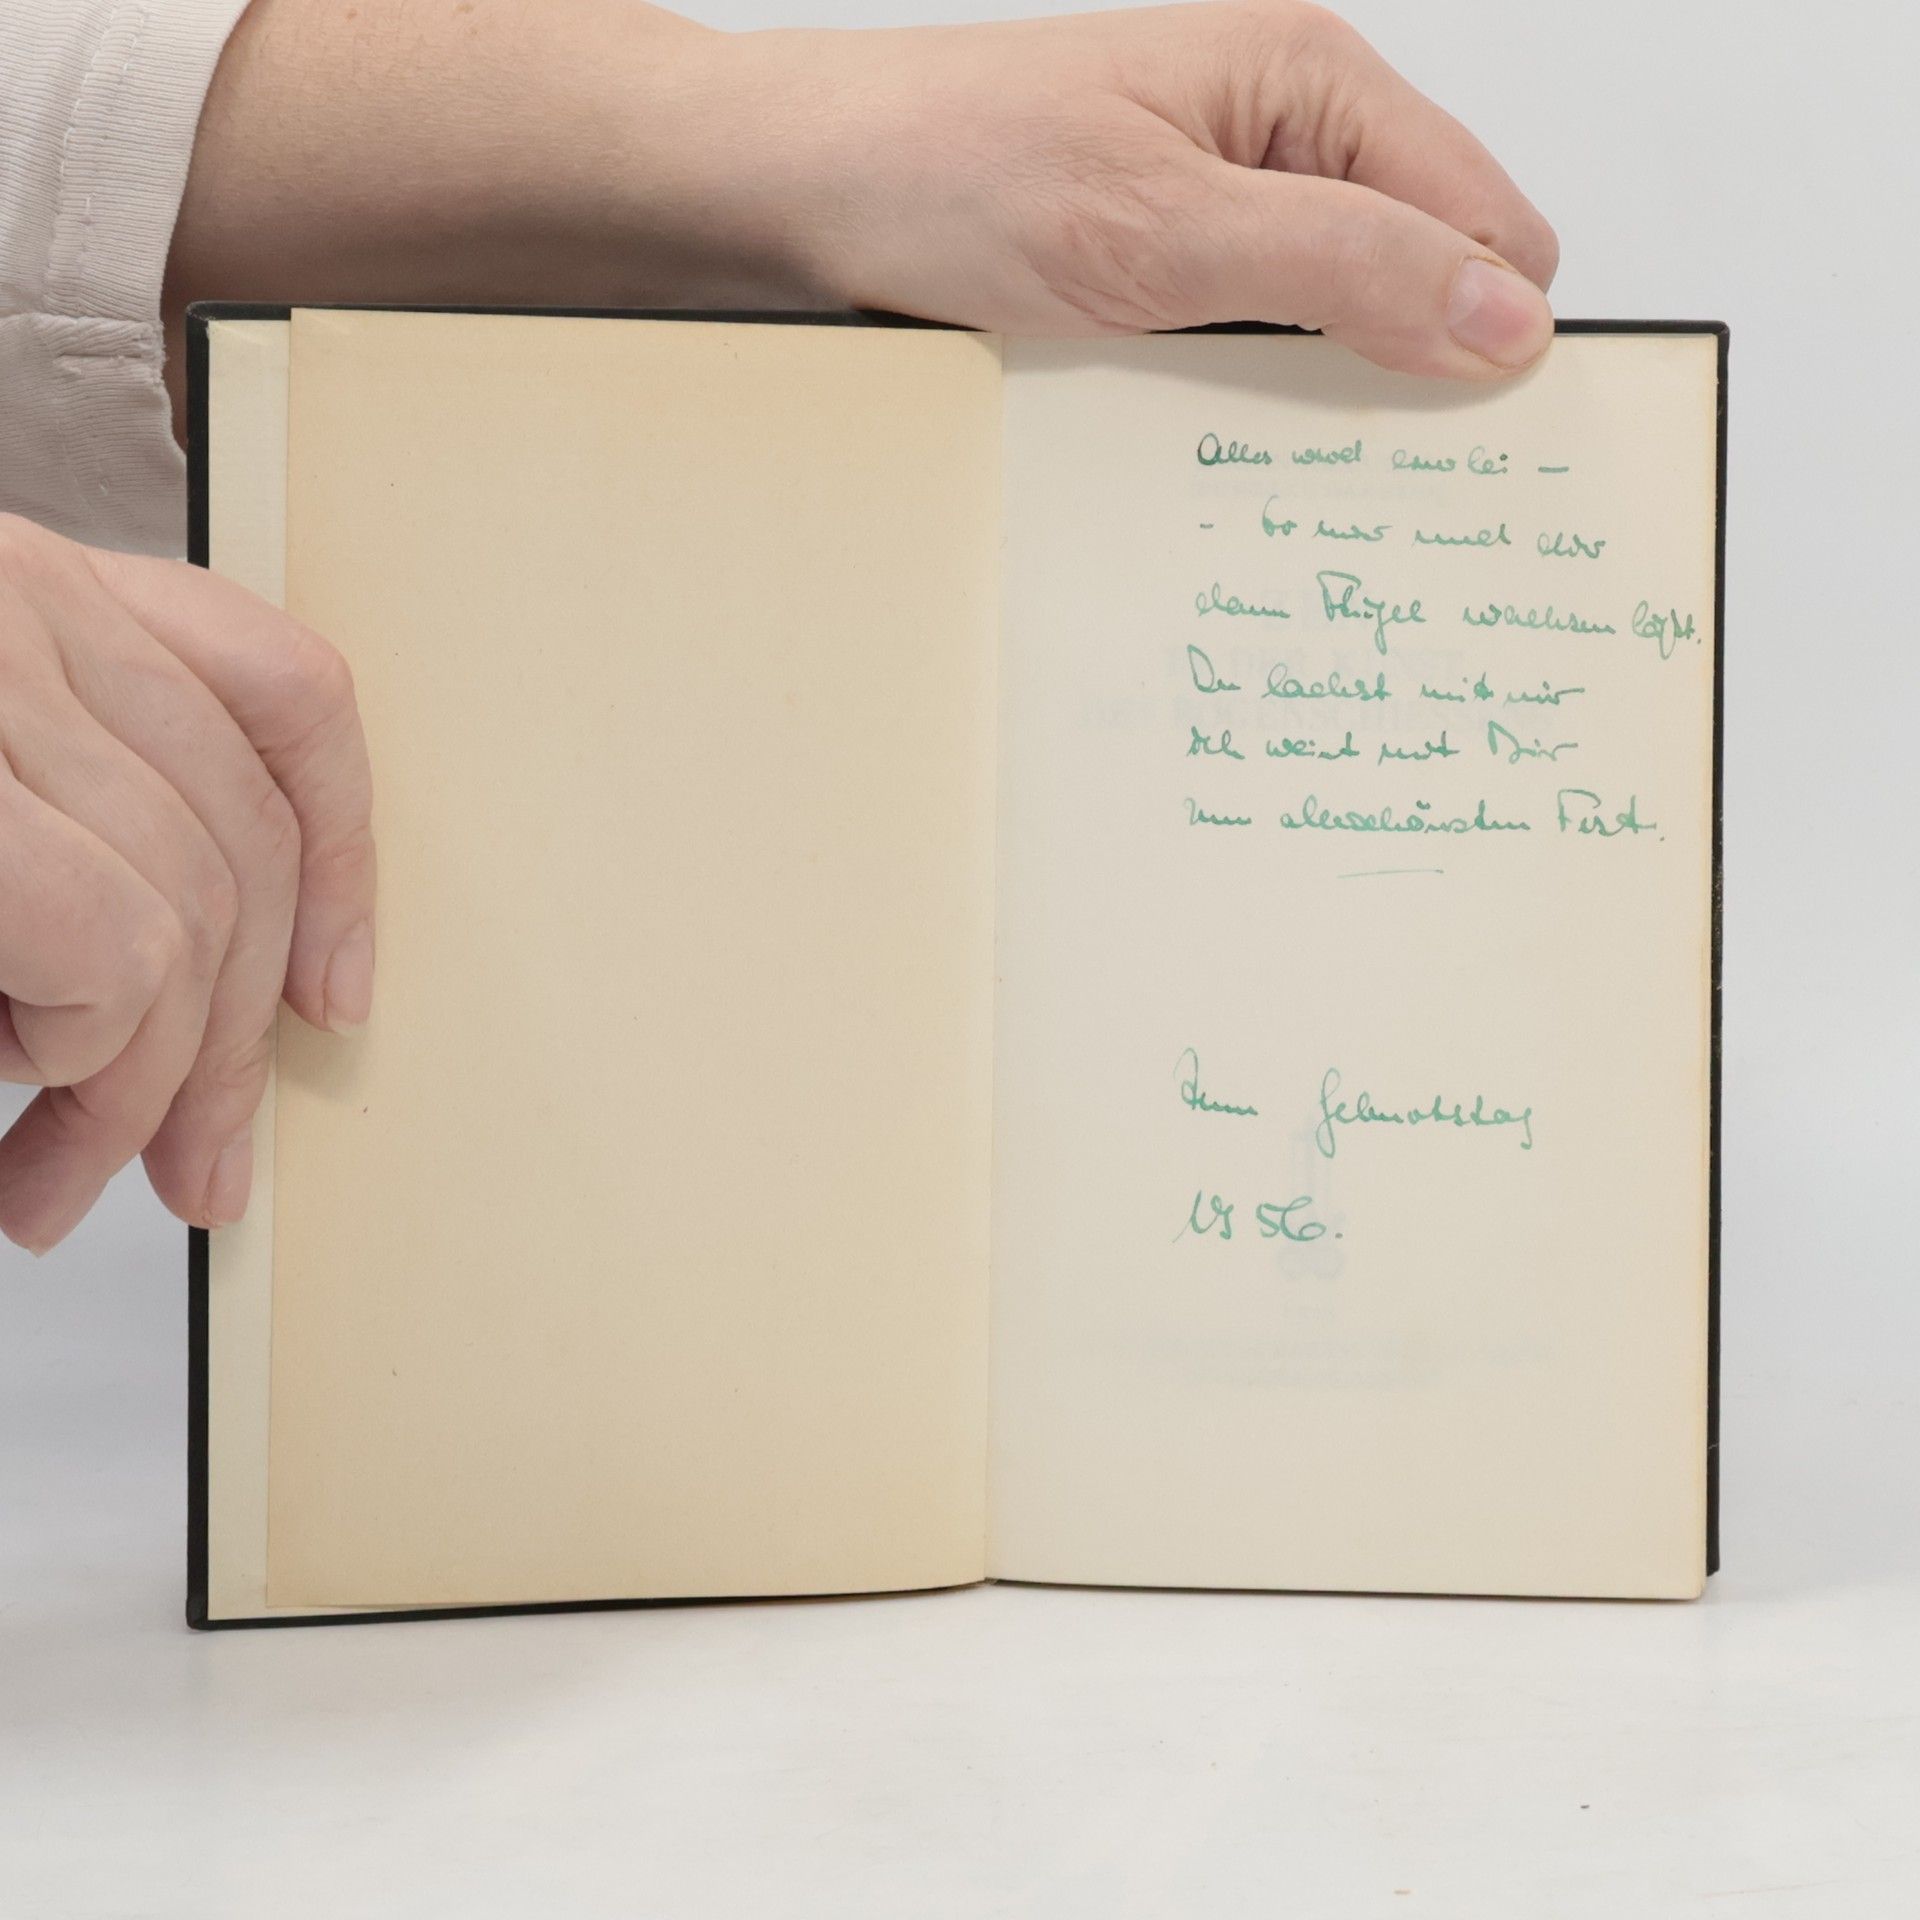 Alles wird einerlei —
- Es mir und dir
dann Flügel wachsen läßt.
Du lachst mit mir
Ich weint mit Dir
zum allerschönsten Fest.
Zum Geburtstag
1956.